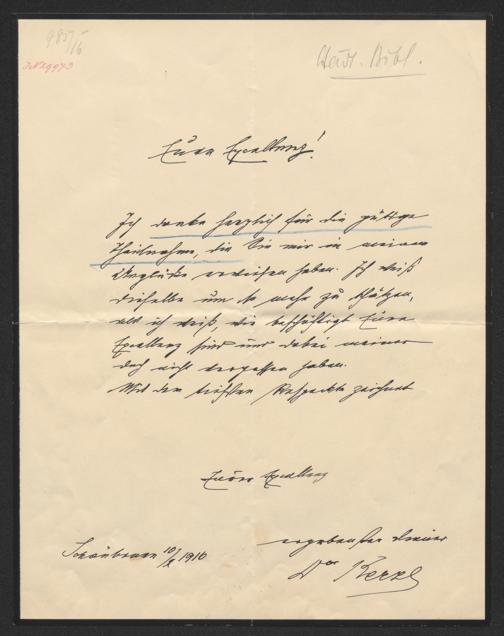 985/16
JN 29973
Städt. Bibl.
Eure Excellenz!
Ich danke herzlich für die gütige
Theilnahme, die Sie mir in meinem
Unglücke erwiesen haben. Ich weiß
dieselbe um so mehr zu schätzen,
als ich weiß, wie beschäftigt Eure
Excellenz sind und dabei meiner
doch nicht vergessen haben.
Mit dem tiefsten Respekte zeichnet
Eurer Excellenz
ergebenster Diener
Schönbrunn 10/X 1910
Dr Kerzl